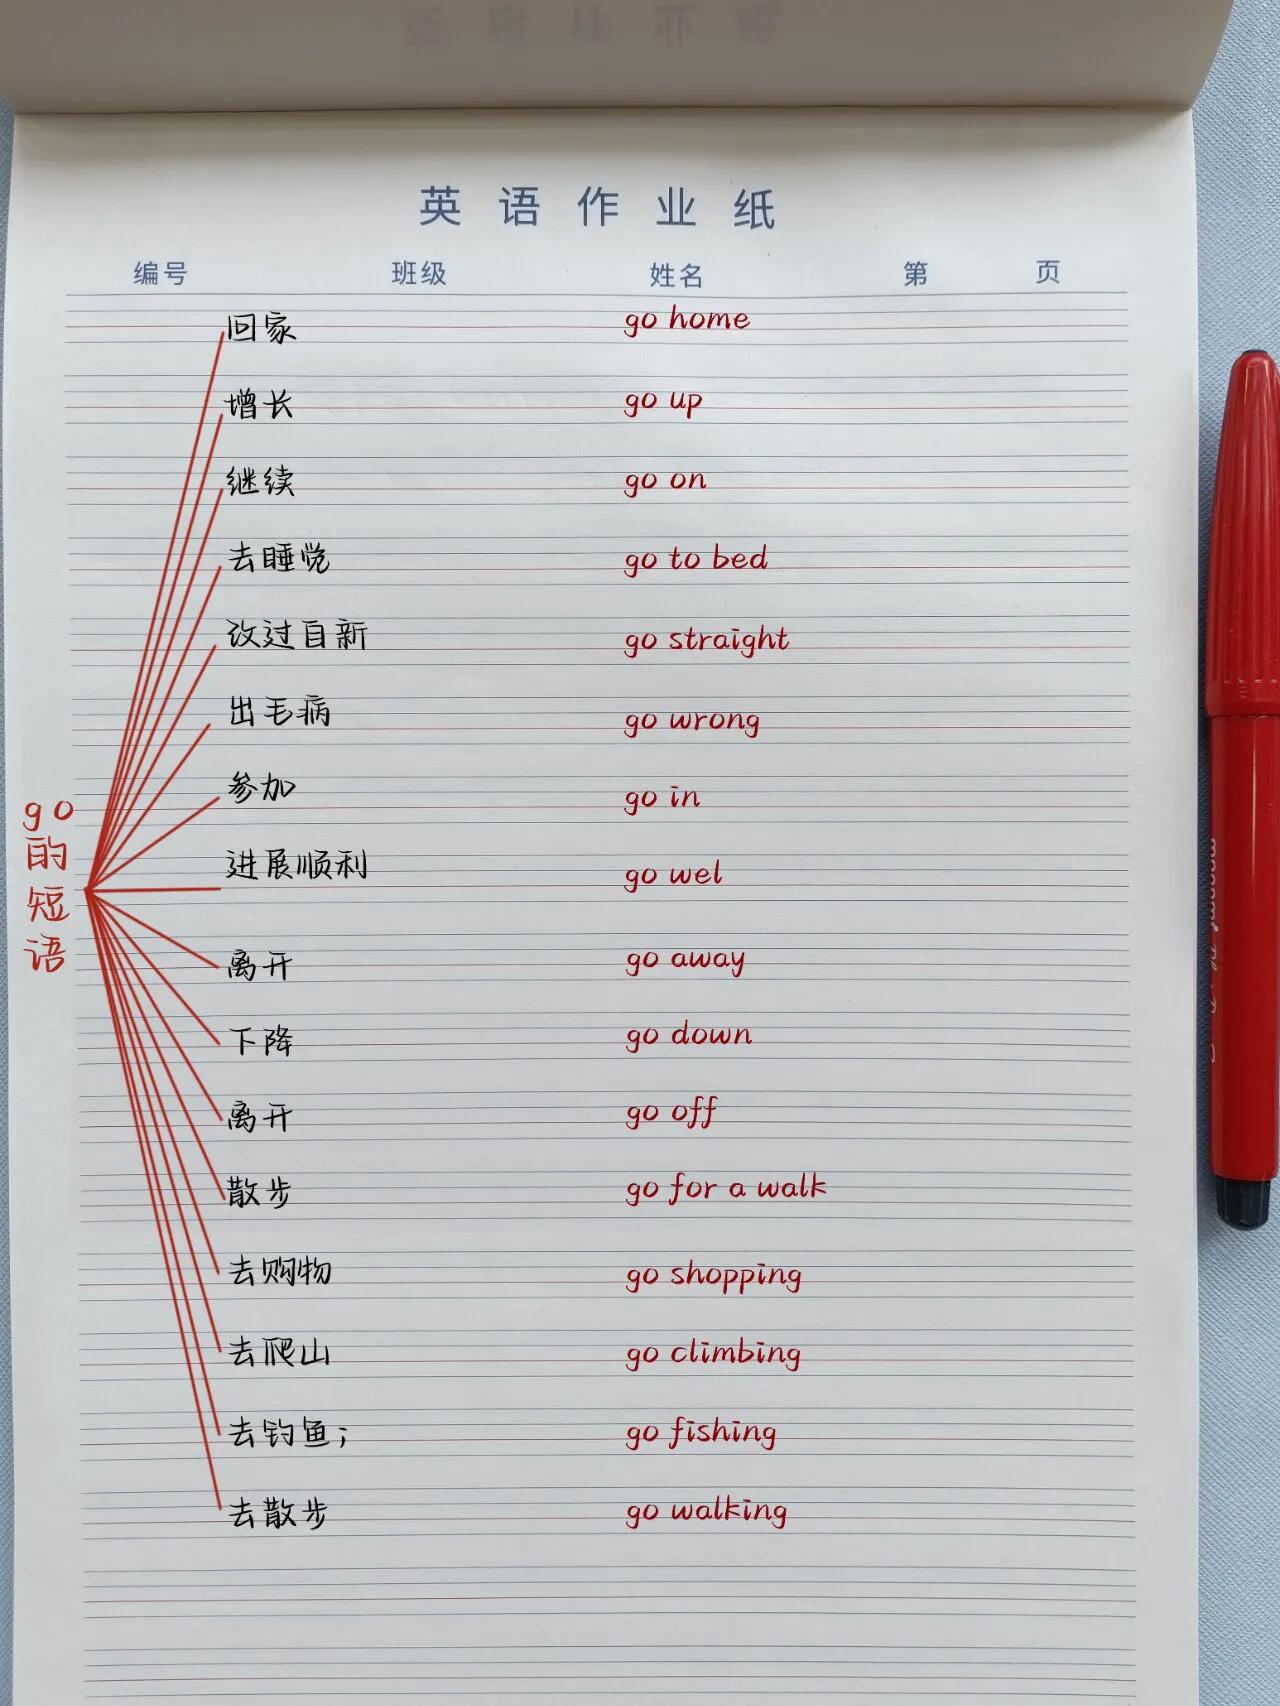 英语作业纸
编号 班级 姓名 第 页
回家 go home
增长 go up
继续 go on
去睡觉 go to bed
改过自新 go straight
出毛病 go wrong
参加 go in
进展顺利 go wel
离开 go away
下降 go down
离开 go off
散步 go for a walk
去购物 go shopping
去爬山 go climbing
去钓鱼; go fishing
去散步 go walking
go
的
短
语